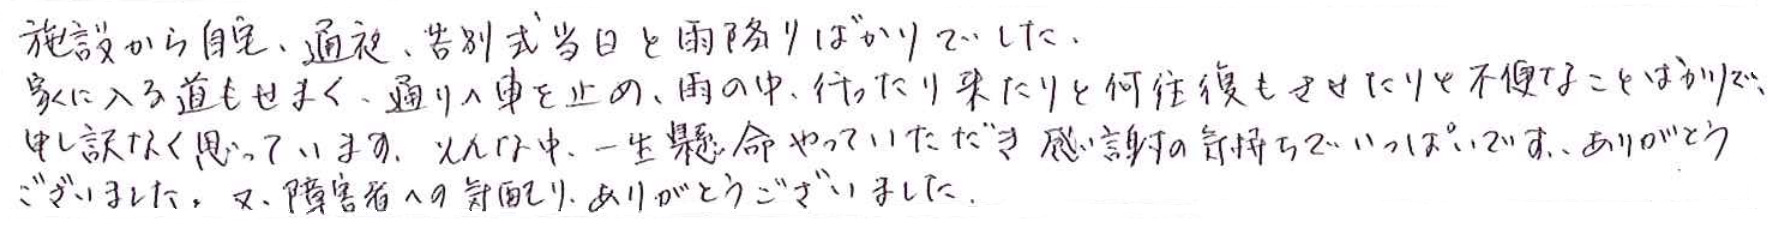 施設から自宅、通夜、告別式当日と雨降りばかりでした、
家に入る道もせまく、通りへ車を止め、雨の中、行ったり来たりと何往復もさせたりと不便なことばかりで、
申し訳なく思っています、そんな中、一生懸命やっていただき感謝の気持ちでいっぱいです、ありがとう
ございました。又、障害者への気配り、ありがとうございました、